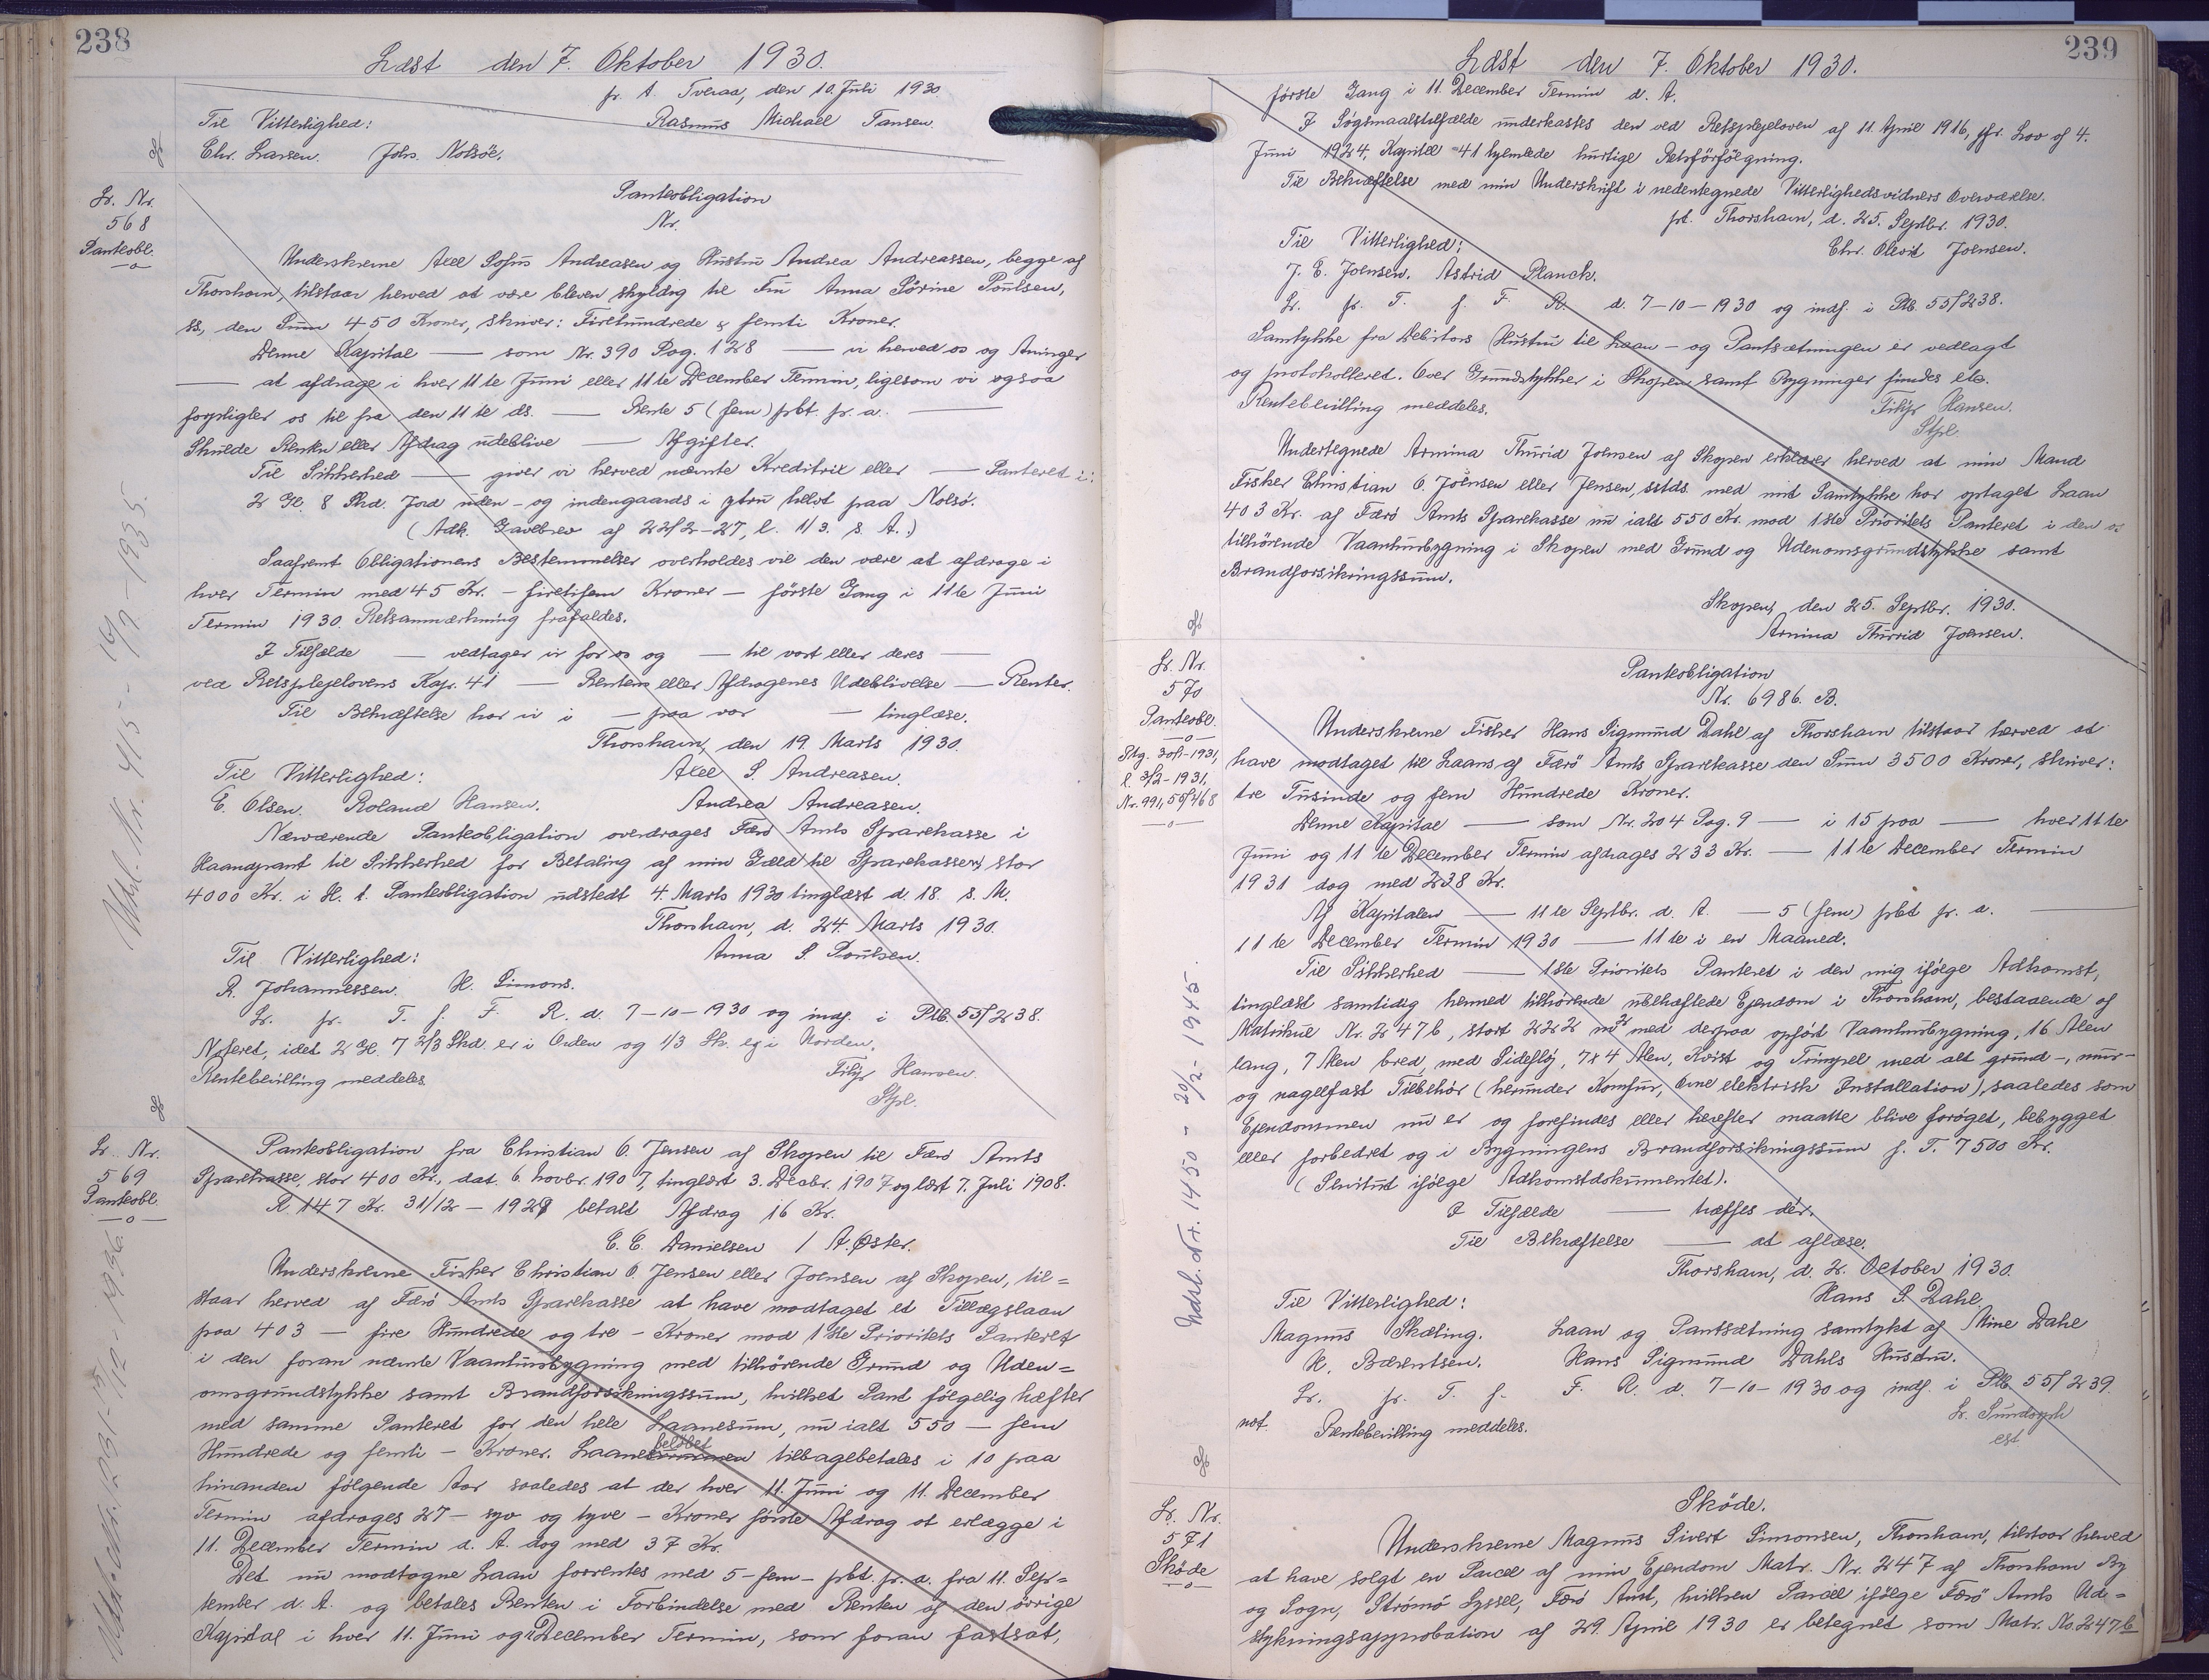 238
Læst den 7. Oktober 1930.
pr. A. Tveraa, den 10. Juli 1930.
Til Vitterlighed: Rasmus Michael Hansen.
Chr. Larsen. Johs. Nolsöe.
Lr. Nr.
568
Panteobl.
—o—
Panteobligation
Nr.
Underskrevne Axel Sofus Andreasen og Hustru Andrea Andreassen, begge af
Thorshavn, tilstaar herved at være bleven skyldig til Fru Anna Sörine Poulsen,
ss, den Sum 450 Kroner, skriver: Firehundrede & femti Kroner.
Denne Kapital — som Nr. 390 Pag. 128 — vi herved os og Arvinger
— at afdrage i hver 11te Juni eller 11te December Termin, ligesom vi ogsaa
forpligter os til fra den 11te ds. — Rente 5 (fem) pbt. pr. a. —
Skulde Renten eller Afdrag udeblive — Afgifter.
Til Sikkerhed — giver vi herved nævnte Kreditrix eller — Panteret i:
2 Gl. 8 Skd. Jord uden- og indengaards i ytru helvt paa Nolsö.
(Adk. Gavebrev af 22/2-27, l. 11/3. s. A.)
Saafremt Obligationens Bestemmelser overholdes vil den være at afdrage i
hver Termin med 45 Kr. - firetifem Kroner - første Gang i 11te Juni
Termin 1930. Retsanmærkning frafaldes.
I Tilfælde — vedtager vi for os og — til vort eller deres —
ved Retsplejelovens Kap. 41 — Rentens eller Afdragenes Udeblivelse — Renter.
Til Bekræftelse har vi i — paa vor — tinglæse.
Thorshavn, den 19. Marts 1930.
Til Vitterlighed: Axel S. Andreasen.
E. Olsen. Roland Hansen. Andrea Andreasen.
Nærværende Panteobligation overdrages Færö Amts Sparekasse i
Haandpant til Sikkerhed for Betaling af min Gæld til Sparekassen, stor
4000 Kr. i H. t. Panteobligation udstedt 4. Marts 1930 tinglæst d. 18. s. M.
Thorshavn, d. 24. Marts 1930.
Til Vitterlighed: Anna S. Poulsen.
R. Johannessen. H. Simons.
Lr. pr. T. f. F. R. d. 7-10-1930 og indf. i Ptb. 55/238.
Noteret, idet 2 Gl. 7 2/3 Skd. er i Orden og 1/3 Sk. ej i Norden.
Rentebevilling meddeles. Filip Hansen.
Stpl.
Udsl. Nr. 415 - 19/7-1935.
Lr. Nr.
569
Panteobl.
—o—
Panteobligation fra Christian O. Jensen af Skopen til Færö Amts
Sparekasse, stor 400 Kr., dat. 6. Novbr. 1907, tinglæst 3. Decbr. 1907 og læst 7. Juli 1908.
R. 147 Kr. 31/12 - 1929 betalt Afdrag 16 Kr.
E. E. Danielsen / A. Øster.
Underskrevne Fisker Christian O. Jensen eller Joensen af Skopen, til=
staar herved af Færö Amts Sparekasse at have modtaget et Tillægslaan
paa 403 - fire Hundrede og tre - Kroner mod 1ste Prioritets Panteret
i den foran nævnte Vaanhusbygning med tilhörende Grund og Uden=
omsgrundstykke samt Brandforsikringssum, hvilket Pant følgelig hæfter
med samme Panteret for den hele Laanesum, nu ialt 550 - fem
Hundrede og femti - Kroner. Laanesummen beløbet tilbagebetales i 10 paa
hinanden følgende Aar saaledes at der hver 11. Juni og 11. December
Termin afdrages 27 - syv og tyve - Kroner første Afdrag at erlægge i
11. December Termin d. A. dog med 37 Kr.
Det nu modtagne Laan forrentes med 5 - fem - pbt. pr. a. fra 11. Sep=
tember d. A. og betales Renten i Forbindelse med Renten af den övrige
Kapital i hver 11. Juni og December Termin, som foran fastsat,
239
Læst den 7. Oktober 1930.
første Gang i 11. December Termin d. A.
I Søgsmaalstilfælde underkastes den ved Retsplejeloven af 11. April 1916, jfr. Lov af 4.
Juni 1924, Kapitel 41 hjemlede hurtige Retsforfølgning.
Til Bekræftelse med min Underskrift i nedentegnede Vitterlighedsvidners Overværelse.
pt. Thorshavn, d. 25. Septbr. 1930.
Til Vitterlighed: Chr. Olevit Joensen.
J. E. Joensen. Astrid Planck.
Lr. pr. T. f. F. R. d. 7-10-1930 og indf. i Ptb. 55/238.
Samtykke fra Debitors Hustru til Laan- og Pantsætningen er vedlagt
og protokolleret. Over Grundstykker i Skopen samt Bygninger findes etc.
Rentebevilling meddeles. Filip Hansen.
Stpl.
Undertegnede Armina Thurid Joensen af Skopen erklærer herved at min Mand
Fisker Christian O. Joensen eller Jensen, sstds. med mit Samtykke har optaget Laan
403 Kr. af Færö Amts Sparekasse nu ialt 550 Kr. mod 1ste Prioritets Panteret i den os
tilhörende Vaanhusbygning i Skopen med Grund og Udenomsgrundstykke samt
Brandforsikringssum.
Skopen, den 25. Septbr. 1930.
Armina Thurrid Joensen.
Lr. Nr.
570
Panteobl.
—o—
l. 3/2-1931.
Nr. 991, 55/468
—o—
Panteobligation
Nr. 6986. B.
Underskrevne Fisker Hans Sigmund Dahl af Thorshavn tilstaar herved at
have modtaget til Laans af Færö Amts Sparekasse den Sum 3500 Kroner, skriver:
tre Tusinde og fem Hundrede Kroner.
Denne Kapital — som Nr. 204 Pag. 9 — i 15 paa — hver 11te
Juni og 11te December Termin afdrages 233 Kr. — 11te December Termin
1931 dog med 238 Kr.
Af Kapitalen — 11te Septbr. d. A. — 5 (fem) pbt pr. a. —
11te December Termin 1930 — 11te i en Maaned.
Til Sikkerhed — 1ste Prioritets Panteret i den mig ifølge Adkomst,
tinglæst samtidig hermed tilhörende ubehæftede Ejendom i Thorshavn, bestaaende af
Matrikul Nr. 247b, stort 222 m² med derpaa opført Vaanhusbygning, 16 Alen
lang, 7 Alen bred, med Sidefløj, 7x4 Alen, Kvist og Frimpel med alt grund-, mur-
og nagelfast Tilbehör (herunder Komfur, Ovne elektrisk Installation), saaledes som
Ejendommen nu er og forefindes eller herefter maatte blive forøget, bebygget
eller forbedret og i Bygningens Brandforsikringssum f. T. 7500 Kr.
(Servitut ifølge Adkomstdokumentet).
I Tilfælde — hæftes der.
Til Bekræftelse — at aflæse.
Thorshavn, d. 2. October 1930.
Til Vitterlighed: Hans S. Dahl.
Magnus Skæling. Laan og Pantsætning samtykt af Mine Dahl
H. Bærentsen. Hans Sigmund Dahls Hustru.
Lr. pr. T. f. F. R. d. 7-10-1930 og indf. i Ptb. 55/239.
not. Rentebevilling meddeles.
Udsl. Nr. 1450 - 20/2-1945.
Lr. Nr.
571
Sköde
—o—
Sköde.
Underskrevne Magnus Sivert Simonsen, Thorshavn, tilstaar herved
at have solgt en Parcel af min Ejendom Matr. Nr. 247 af Thorshavn By
og Sogn, Strömö Syssel, Færö Amt, hvilken Parcel ifølge Færö Amts Ud=
stykningsapprobation af 29. April 1930 er betegnet som Matr. No. 247b